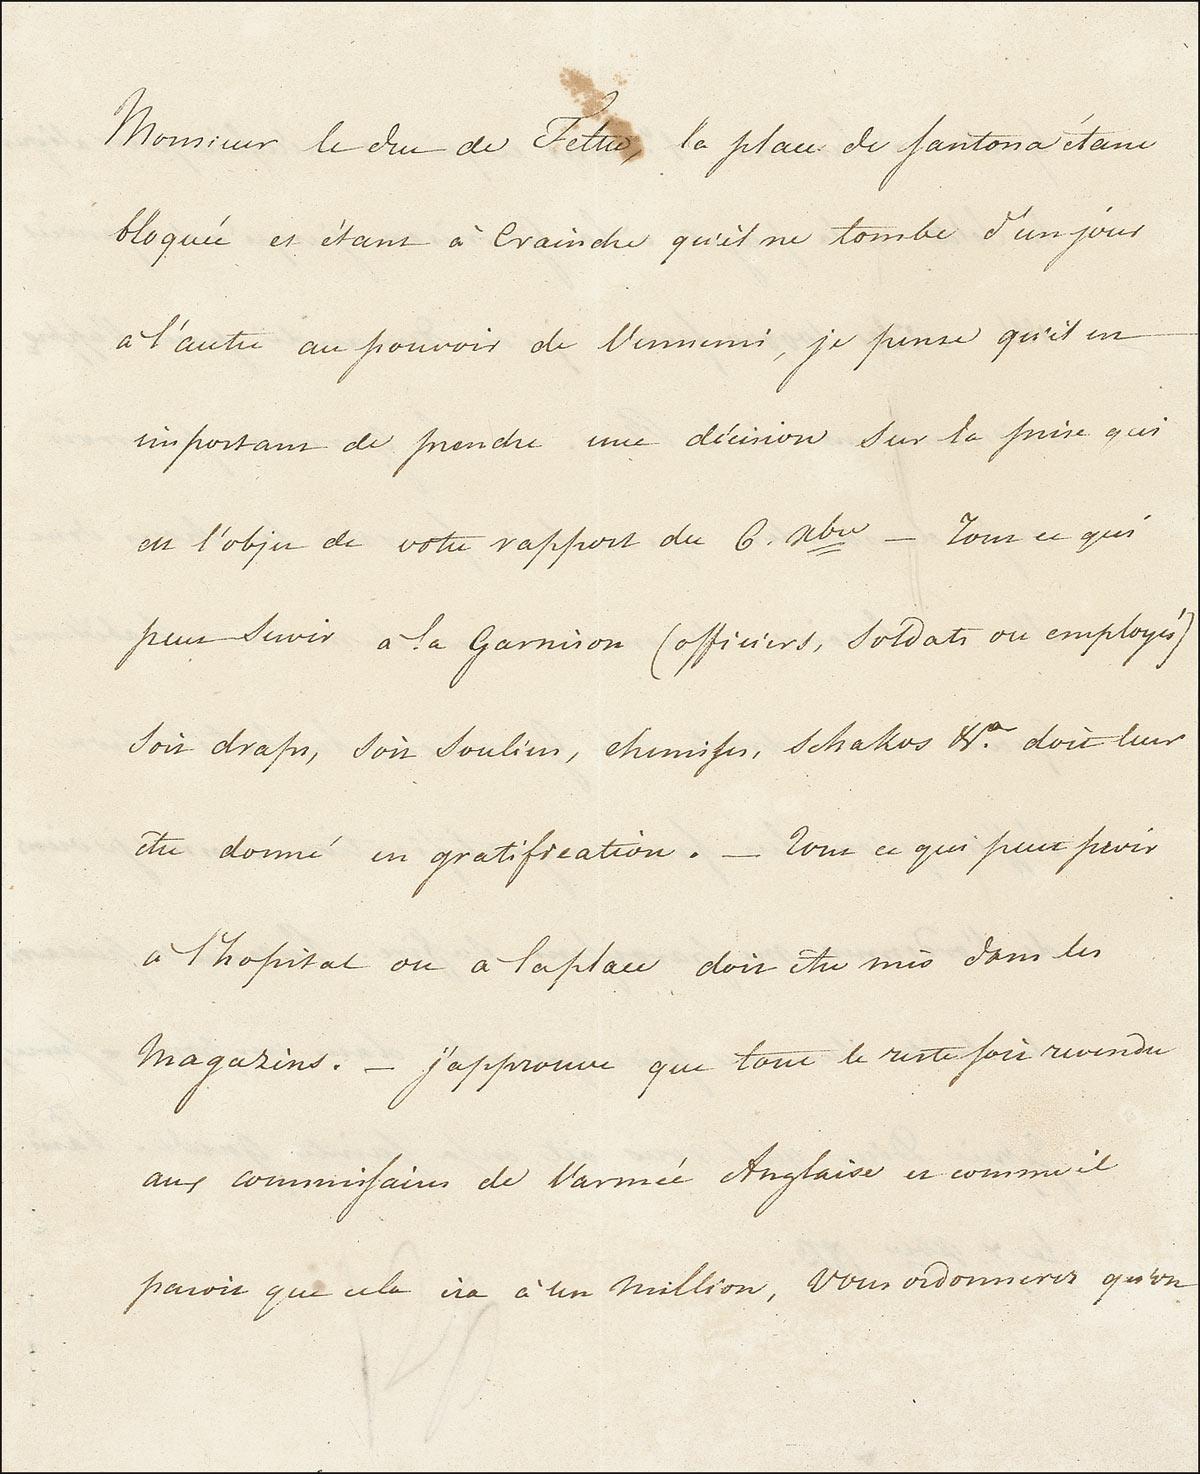 Monsieur le duc de Feltre, la place de Santona étant
bloquée et étant à craindre qu'il ne tombe d'un jour
à l'autre au pouvoir de l'ennemi, je pense qu'il est
important de prendre une décision sur la prise qui
est l'objet de votre rapport du 6. Xbre — Tout ce qui
peut servir a la Garnison (officiers, soldats ou employés)
soit draps, soit souliers, chemises, schakos &a. doit leur
être donné en gratification. — Tout ce qui peut servir
à l'hopital ou a la place doit être mis dans les
Magazins. — j'approuve que tout le reste soit revendu
aux commissaires de l'armée Anglaise et comme il
paroit que cela ira à un million, Vous ordonnerez qu'on